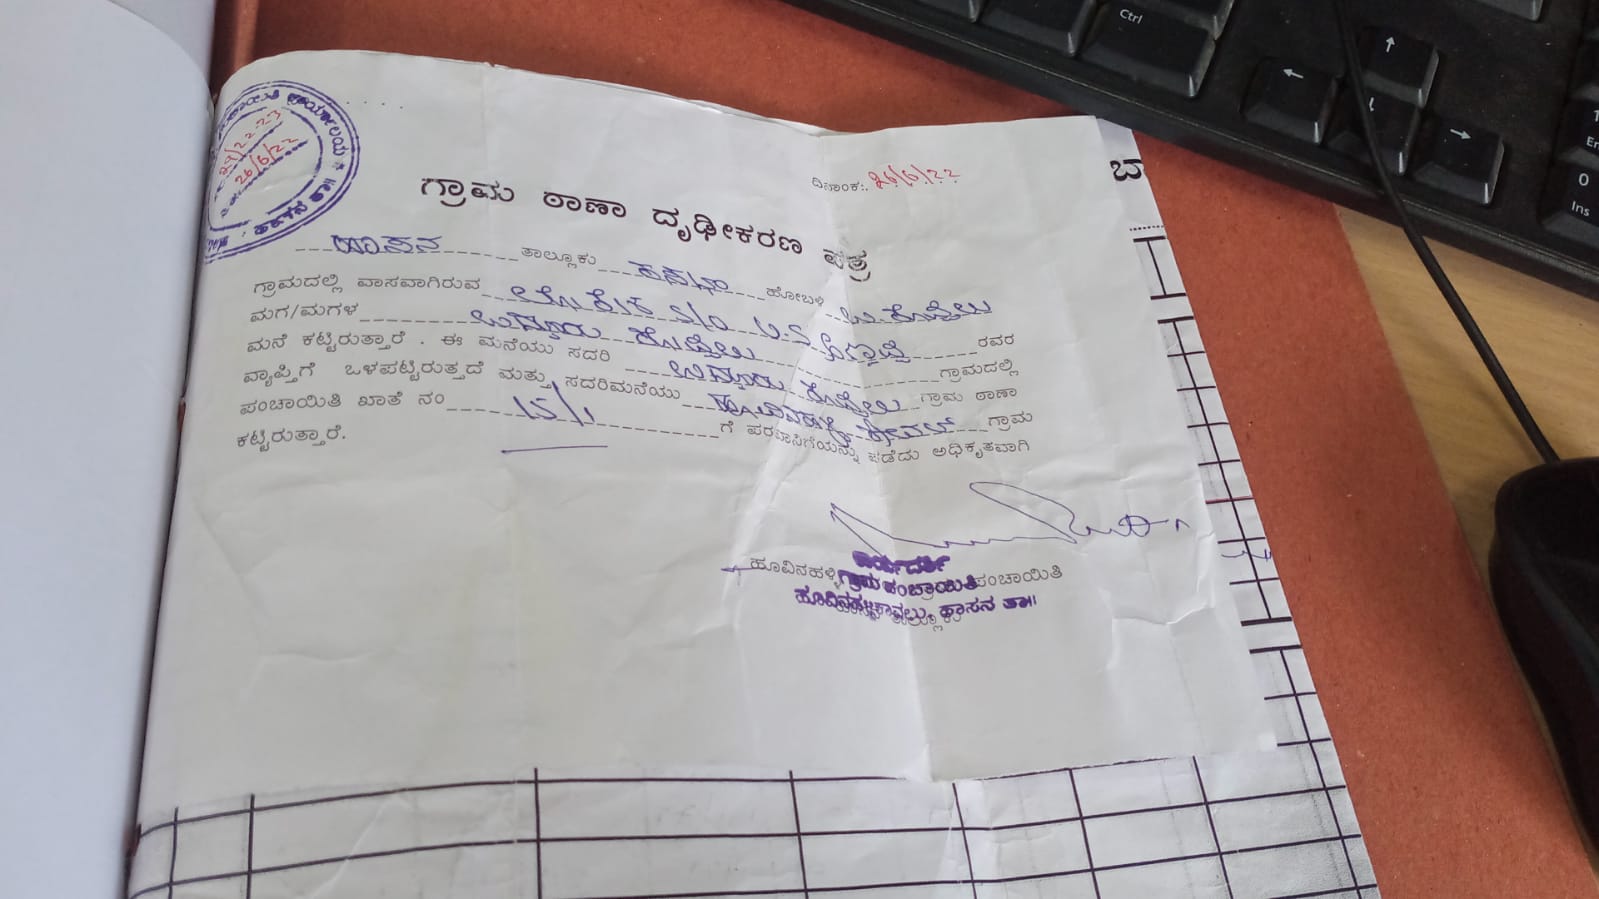 ಪಂಚಾಯಿತಿ ಕಾರ್ಯಾಲಯ
26/6/22
ದಿನಾಂಕ: 26/6/22
ಗ್ರಾಮ ಠಾಣಾ ದೃಢೀಕರಣ ಪತ್ರ
ಹಾಸನ ತಾಲ್ಲೂಕು ಕಸಬಾ ಹೋಬಳಿ
ಗ್ರಾಮದಲ್ಲಿ ವಾಸವಾಗಿರುವ ಲೋಕೇಶ S/O
ಮಗ/ಮಗಳ ಕೊಪ್ಪಲು ರವರ
ಮನೆ ಕಟ್ಟಿರುತ್ತಾರೆ . ಈ ಮನೆಯು ಸದರಿ ಕೊಪ್ಪಲು ಗ್ರಾಮದಲ್ಲಿ
ವ್ಯಾಪ್ತಿಗೆ ಒಳಪಟ್ಟಿರುತ್ತದೆ ಮತ್ತು ಸದರಿಮನೆಯು ಗ್ರಾಮ ಠಾಣಾ
ಪಂಚಾಯಿತಿ ಖಾತೆ ನಂ 15/1 ಗ್ರಾಮ
ಗೆ ಪರವಾನಿಗೆಯನ್ನು ಪಡೆದು ಅಧಿಕೃತವಾಗಿ
ಕಟ್ಟಿರುತ್ತಾರೆ.
ಕಾರ್ಯದರ್ಶಿ
ಹೂವಿನಹಳ್ಳಿ ಗ್ರಾಮ ಪಂಚಾಯಿತಿ ಪಂಚಾಯಿತಿ
ಹೂವಿನಹಳ್ಳಿ ಕಾವಲು, ಹಾಸನ ತಾ||
Ctrl
0
Ins